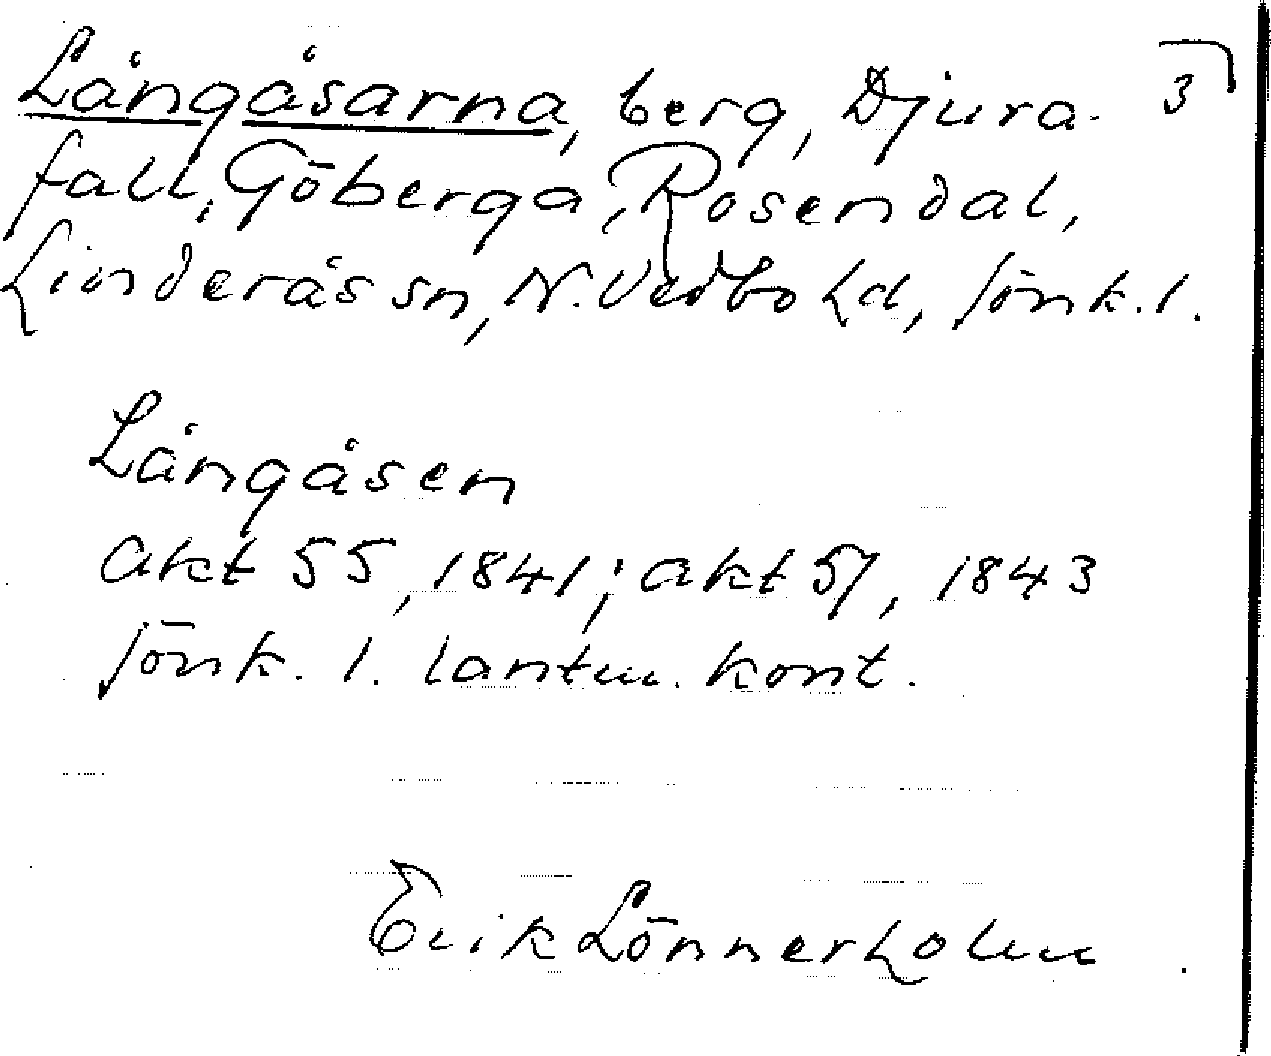 Långåsarna, berg, Djura- 3
fall, Göberga, Rosendal,
Linderås sn, N. Vedbo hd, Jönk. l.
Långåsen
akt 55, 1841; akt 57, 1843
Jönk. l. lantm. kont.
Erik Lönnerholm